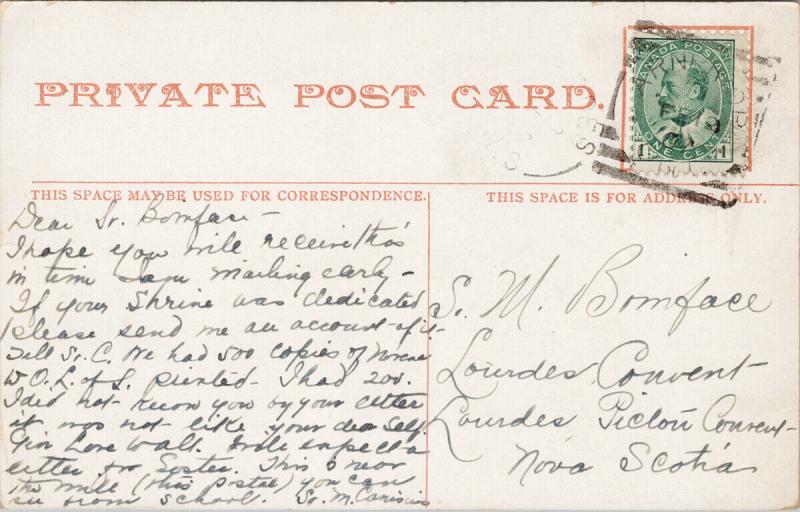 PRIVATE POST CARD.
CANADA POSTAGE
ONE CENT
1 1
THIS SPACE MAY BE USED FOR CORRESPONDENCE.
THIS SPACE IS FOR ADDRESS ONLY.
Dear Sr. Boniface -
I hope you will receive this
in time I am mailing early -
If your Shrine was dedicated
please send me an account of it -
Tell Sr. C. We had 500 copies of Novena
to O. L. of L. printed - I had 200.
I did not know you by your letter
it was not like your dear self.
Give love to all. I will expect a
letter Sister. This is near
the mill (this postal) you can
see from school. Sr. M. Canisius
S. M. Boniface
Lourdes Convent -
Lourdes Pictou Convent -
Nova Scotia